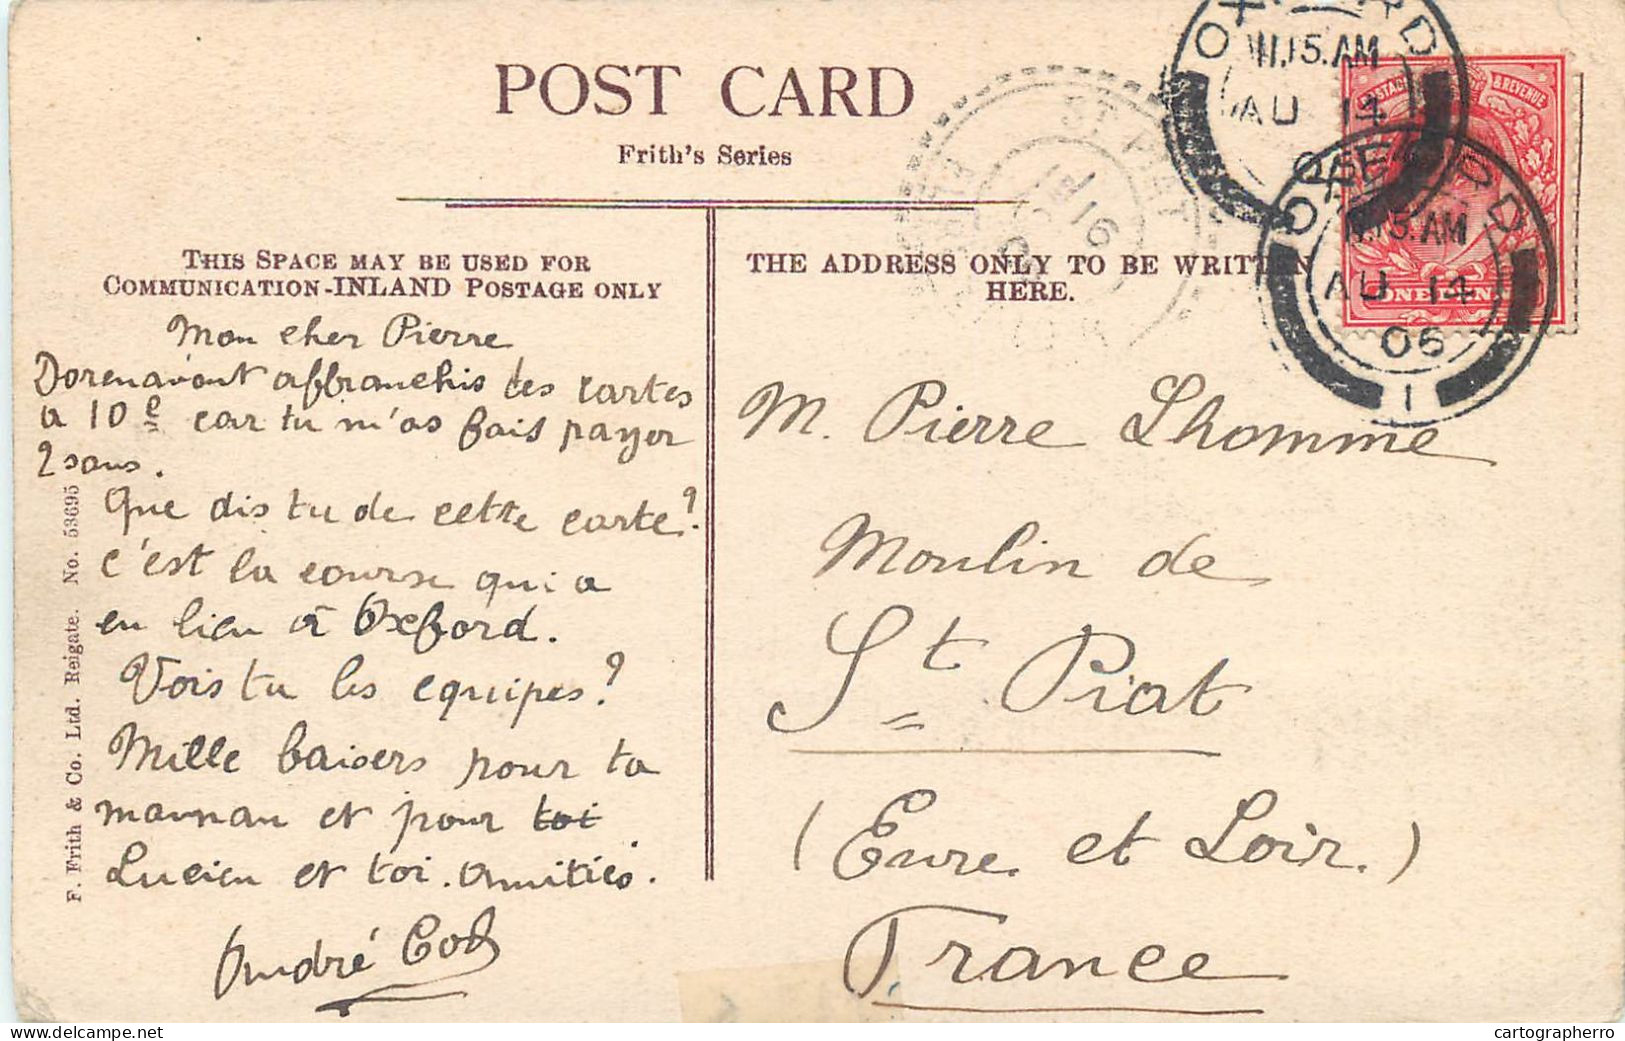 POST CARD
Frith's Series
THIS SPACE MAY BE USED FOR
COMMUNICATION-INLAND POSTAGE ONLY
THE ADDRESS ONLY TO BE WRITTEN
HERE.
Mon cher Pierre
Dorenavant affranchis tes cartes
a 10 c car tu m'as fais payer
2 sous.
Que dis tu de cette carte?
c'est la course qui a
eu lieu à Oxford.
Vois tu les equipes?
Mille baisers pour ta
maman et pour toi
Lucien et toi. Amitiés.
André
M. Pierre Lhomme
Moulin de
St Piat
(Eure et Loir.)
France
F. Frith & Co. Ltd. Reigate. No. 53695
OXFORD
11.15.AM
AU 14
OXFORD
11.15.AM
AU 14
06
1
POSTAGE & REVENUE
ONE PENNY
ST PIAT
16
cartographerro
www.delcampe.net